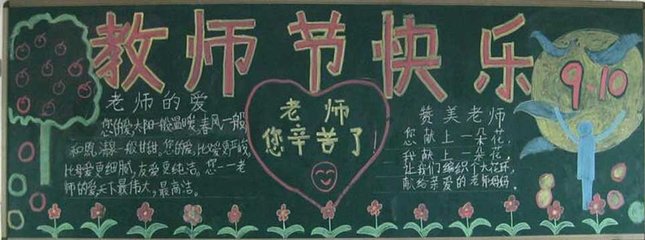 教师节快乐
9.10
老师的爱
您的爱,太阳一般温暖,春风一般
和煦,清泉一般甘甜,您的爱,比父爱更严峻,
比母爱更细腻,友爱更纯洁。您--老
师的爱天下最伟大,最高洁。
老师
您辛苦了!
赞美老师
您献上一朵花,
我献上一朵花,
让我们编织个大花球,
献给亲爱的老师妈妈